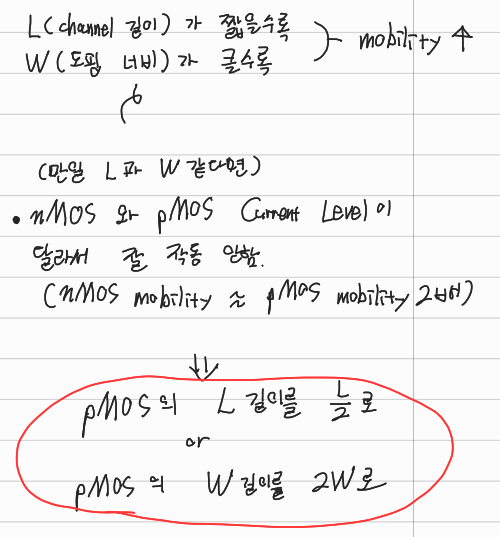 L(channel 길이)가 짧을수록
W(도핑 너비)가 클수록
mobility ↑
(만일 L과 W 같다면)
• nMOS 와 pMOS Current Level이
달라서 잘 작동 안함.
(nMOS mobility ≈ pMOS mobility 2배)
⇓
pMOS의 L 길이를 L/2 로
or
pMOS의 W 길이를 2W로